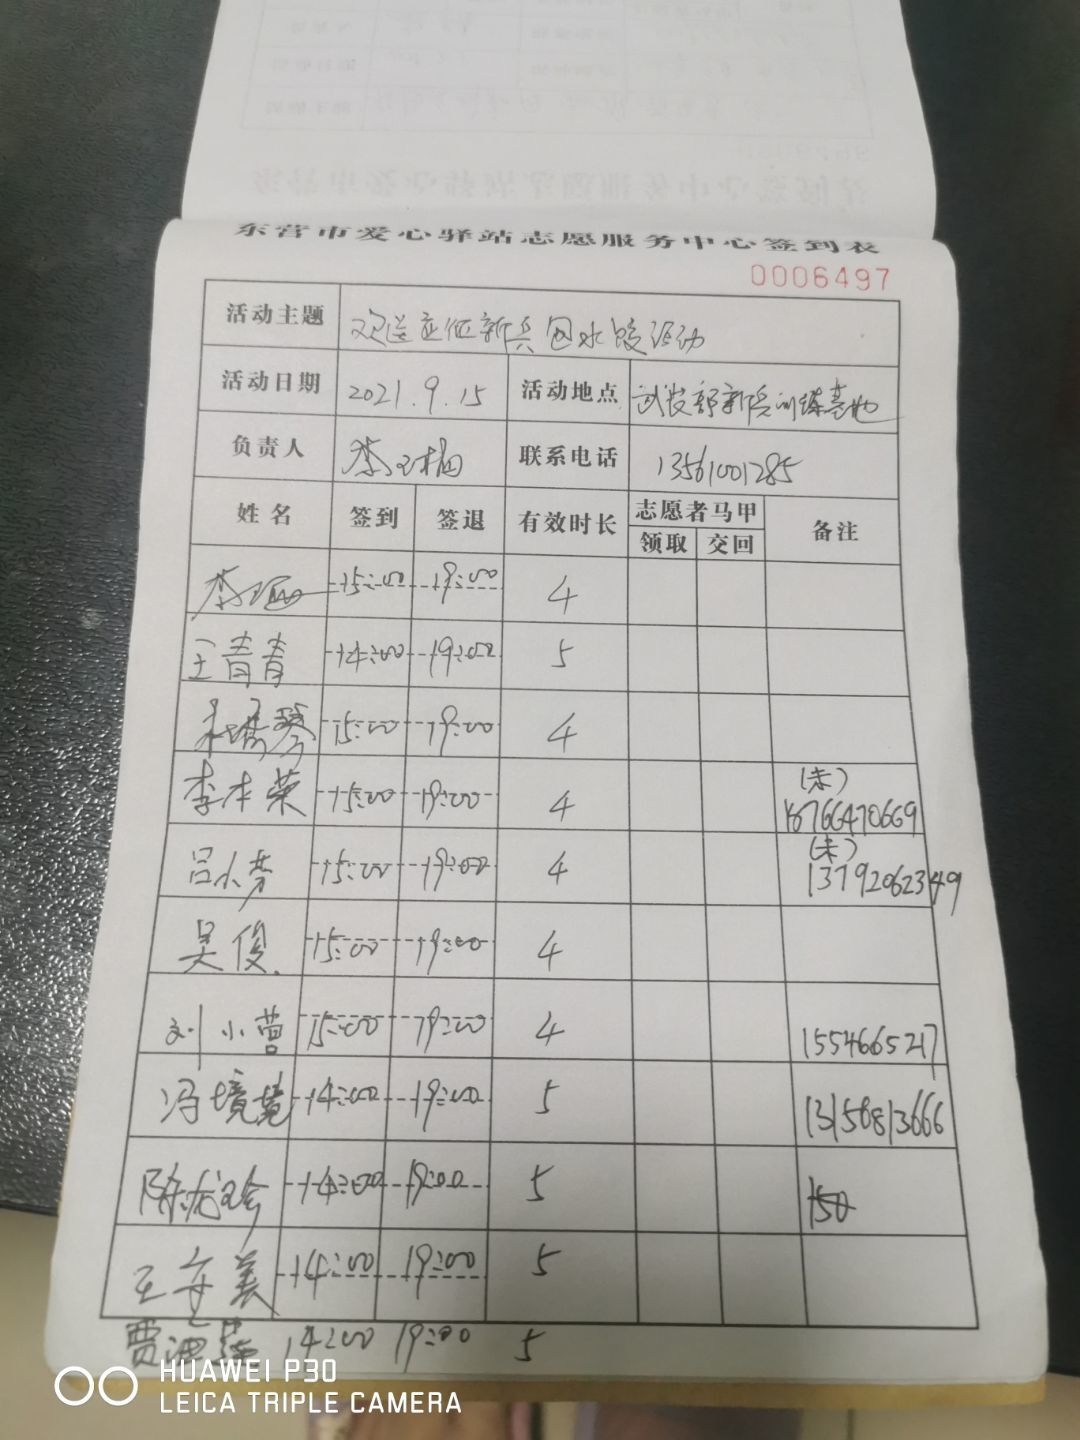 东营市爱心驿站志愿服务中心签到表
0006497
活动主题 欢送应征新兵包水饺活动
活动日期 2021.9.15 活动地点 武装部新兵训练基地
负责人 李玉梅 联系电话 13561001285
姓名 签到 签退 有效时长 志愿者马甲 备注
领取 交回
15:00 19:00 4
王青青 14:00 19:00 5
15:00 19:00 4
李本荣 15:00 19:00 4 (未) 18766470669
吕小芳 15:00 19:00 4 (未) 13792062349
吴俊 15:00 19:00 4
刘小营 15:00 19:00 4 15546665217
冯境慧 14:00 19:00 5 13156813666
14:00 19:00 5 150
王守美 14:00 19:00 5
贾 14:00 19:00 5
HUAWEI P30
LEICA TRIPLE CAMERA